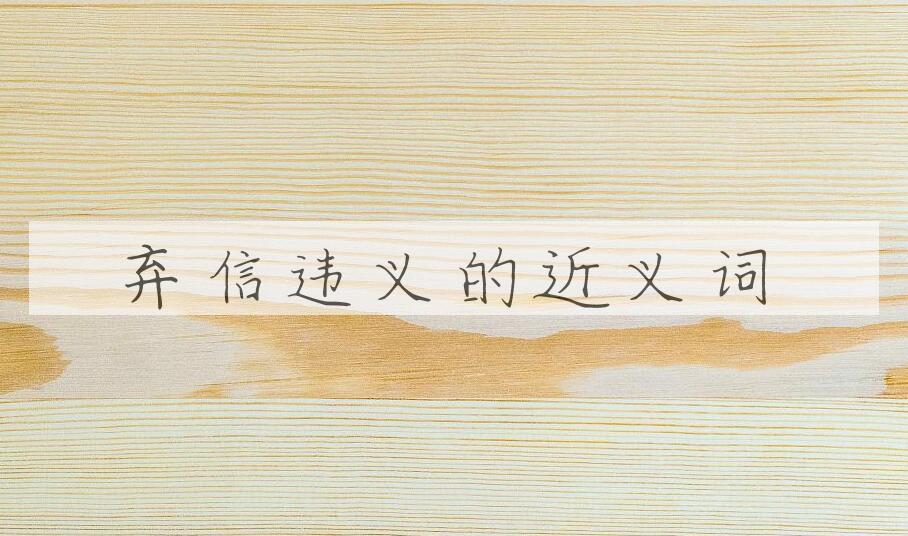 弃信违义的近义词